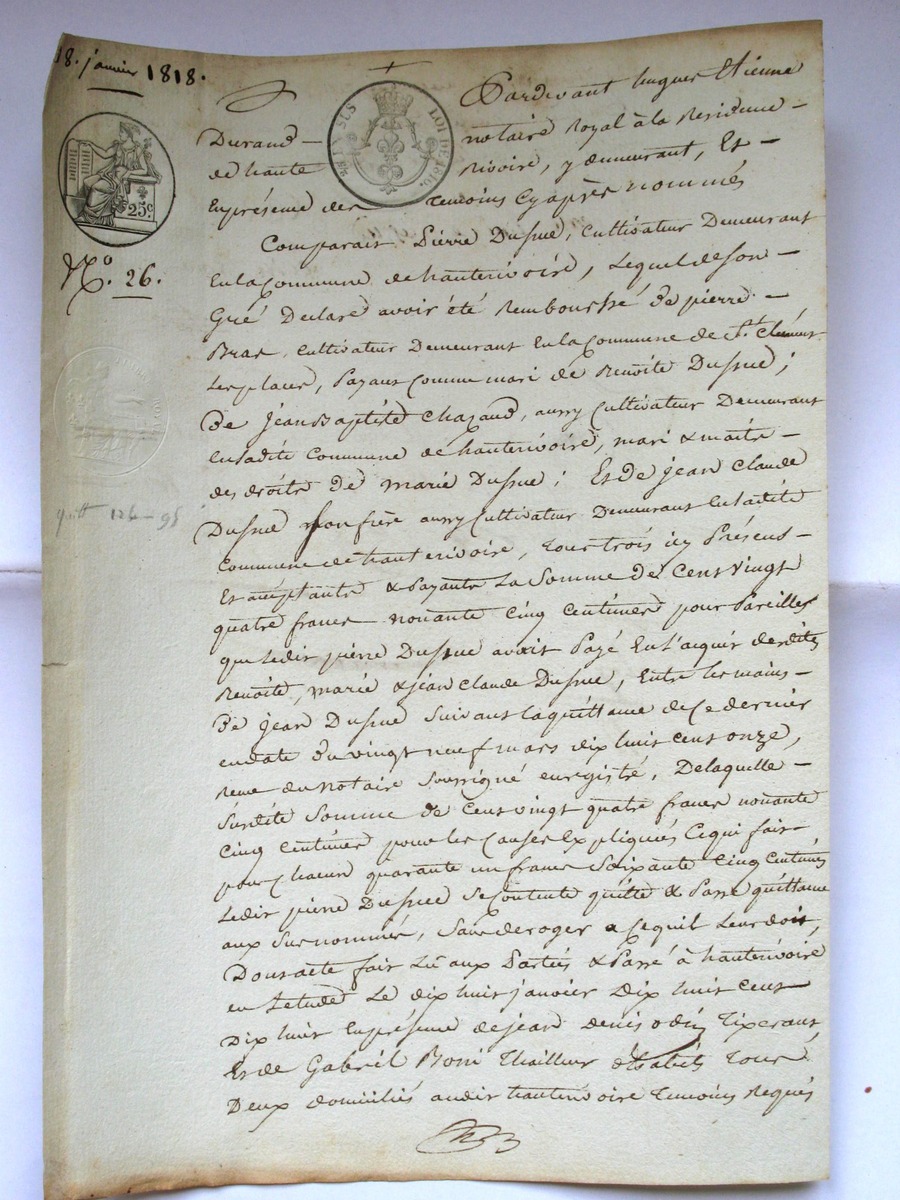 18. janvier 1818.
Pardevant hugues Etienne
Durand notaire Royal à la Residence
de haute Rivoire, y demeurant, Et
En présence des Temoins Cy après nommés
EN SUS LOI DE 1816.
25c.
N.º 26.
Comparait Pierre Dussue, Cultivateur Demeurant
En la Commune de hauterivoire, Lequel de son
Gré Declare avoir été Remboursé de pierre
Bras, Cultivateur Demeurant En la Commune de St. Clément
Les places, Payant Comme mari de Benoite Dussue;
De Jean Baptiste Chazaud, aussy Cultivateur Demeurant
En ladite Commune de hauterivoire, mari & maitre
des droits de marie Dussue; Et de jean Claude
Dussue son frère aussy Cultivateur Demeurant En ladite
Commune de hauterivoire, tous trois icy Présens
Et acceptants & Payants La Somme de Cent vingt
quatre francs nonante Cinq Centimes pour Pareille
que Ledit pierre Dussue avoit Payé En L'acquit desdites
Benoite, marie & jean Claude Dussue, Entre les mains
De jean Dussue Suivant La quittance de Ce dernier
en date du vingt neuf mars dix huit cent onze,
Reçue du Notaire Soussigné enregistré, De laquelle
Susdite Somme de Cent vingt quatre francs nonante
Cinq Centimes pour les Causes Expliquées Ce qui fait
pour Chacun quarante un francs Soixante Cinq Centimes
Ledit pierre Dussue Se Contente quitte & Passe quittance
aux Surnommés, Sans deroger a Ce qu'il Leur doit,
Dont acte fait Lû aux Parties & Passé à hauterivoire
en Letude Le dix huit janvier Dix huit Cent
Dix huit En présence de jean denis odin Tixerant,
Et de Gabriel Boni Thailleur d'habits Tous
Deux domiciliés audit hauterivoire Temoins Requis
quitt 124-95